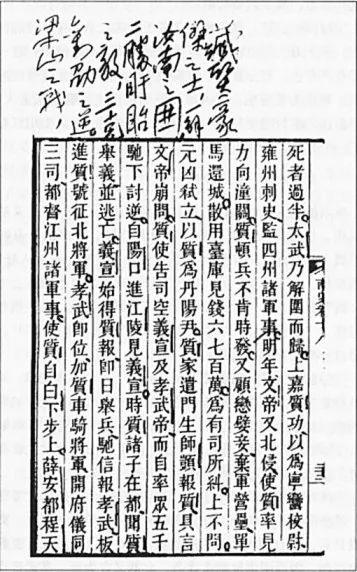 臧質豪
傑之士，解
汝南之圍
二勝盱眙
之敵，三克
劉劭之逆。
梁山之戰
死者過半太武乃解圍而歸上嘉質功以為寧蠻校尉
雍州刺史監四州諸軍事明年文帝又北侵使質率見
力向潼關質頓兵不肯時發又顧戀嬖妾棄軍營壘單
馬還城散用臺庫見錢六七百萬為有司所糾上不問
元凶弒立以質為丹陽尹質家遣門生師顗報質具言
文帝崩問質使告司空義宣及孝武帝而自率眾五千
馳下討逆自陽口進江陵見義宣時質諸子在都聞質
舉義並逃亡義宣始得質報即日舉兵馳信報孝武板
進質號征北將軍孝武即位加質車騎將軍開府儀同
三司都督江州諸軍事使質自白下步上薛安都程天